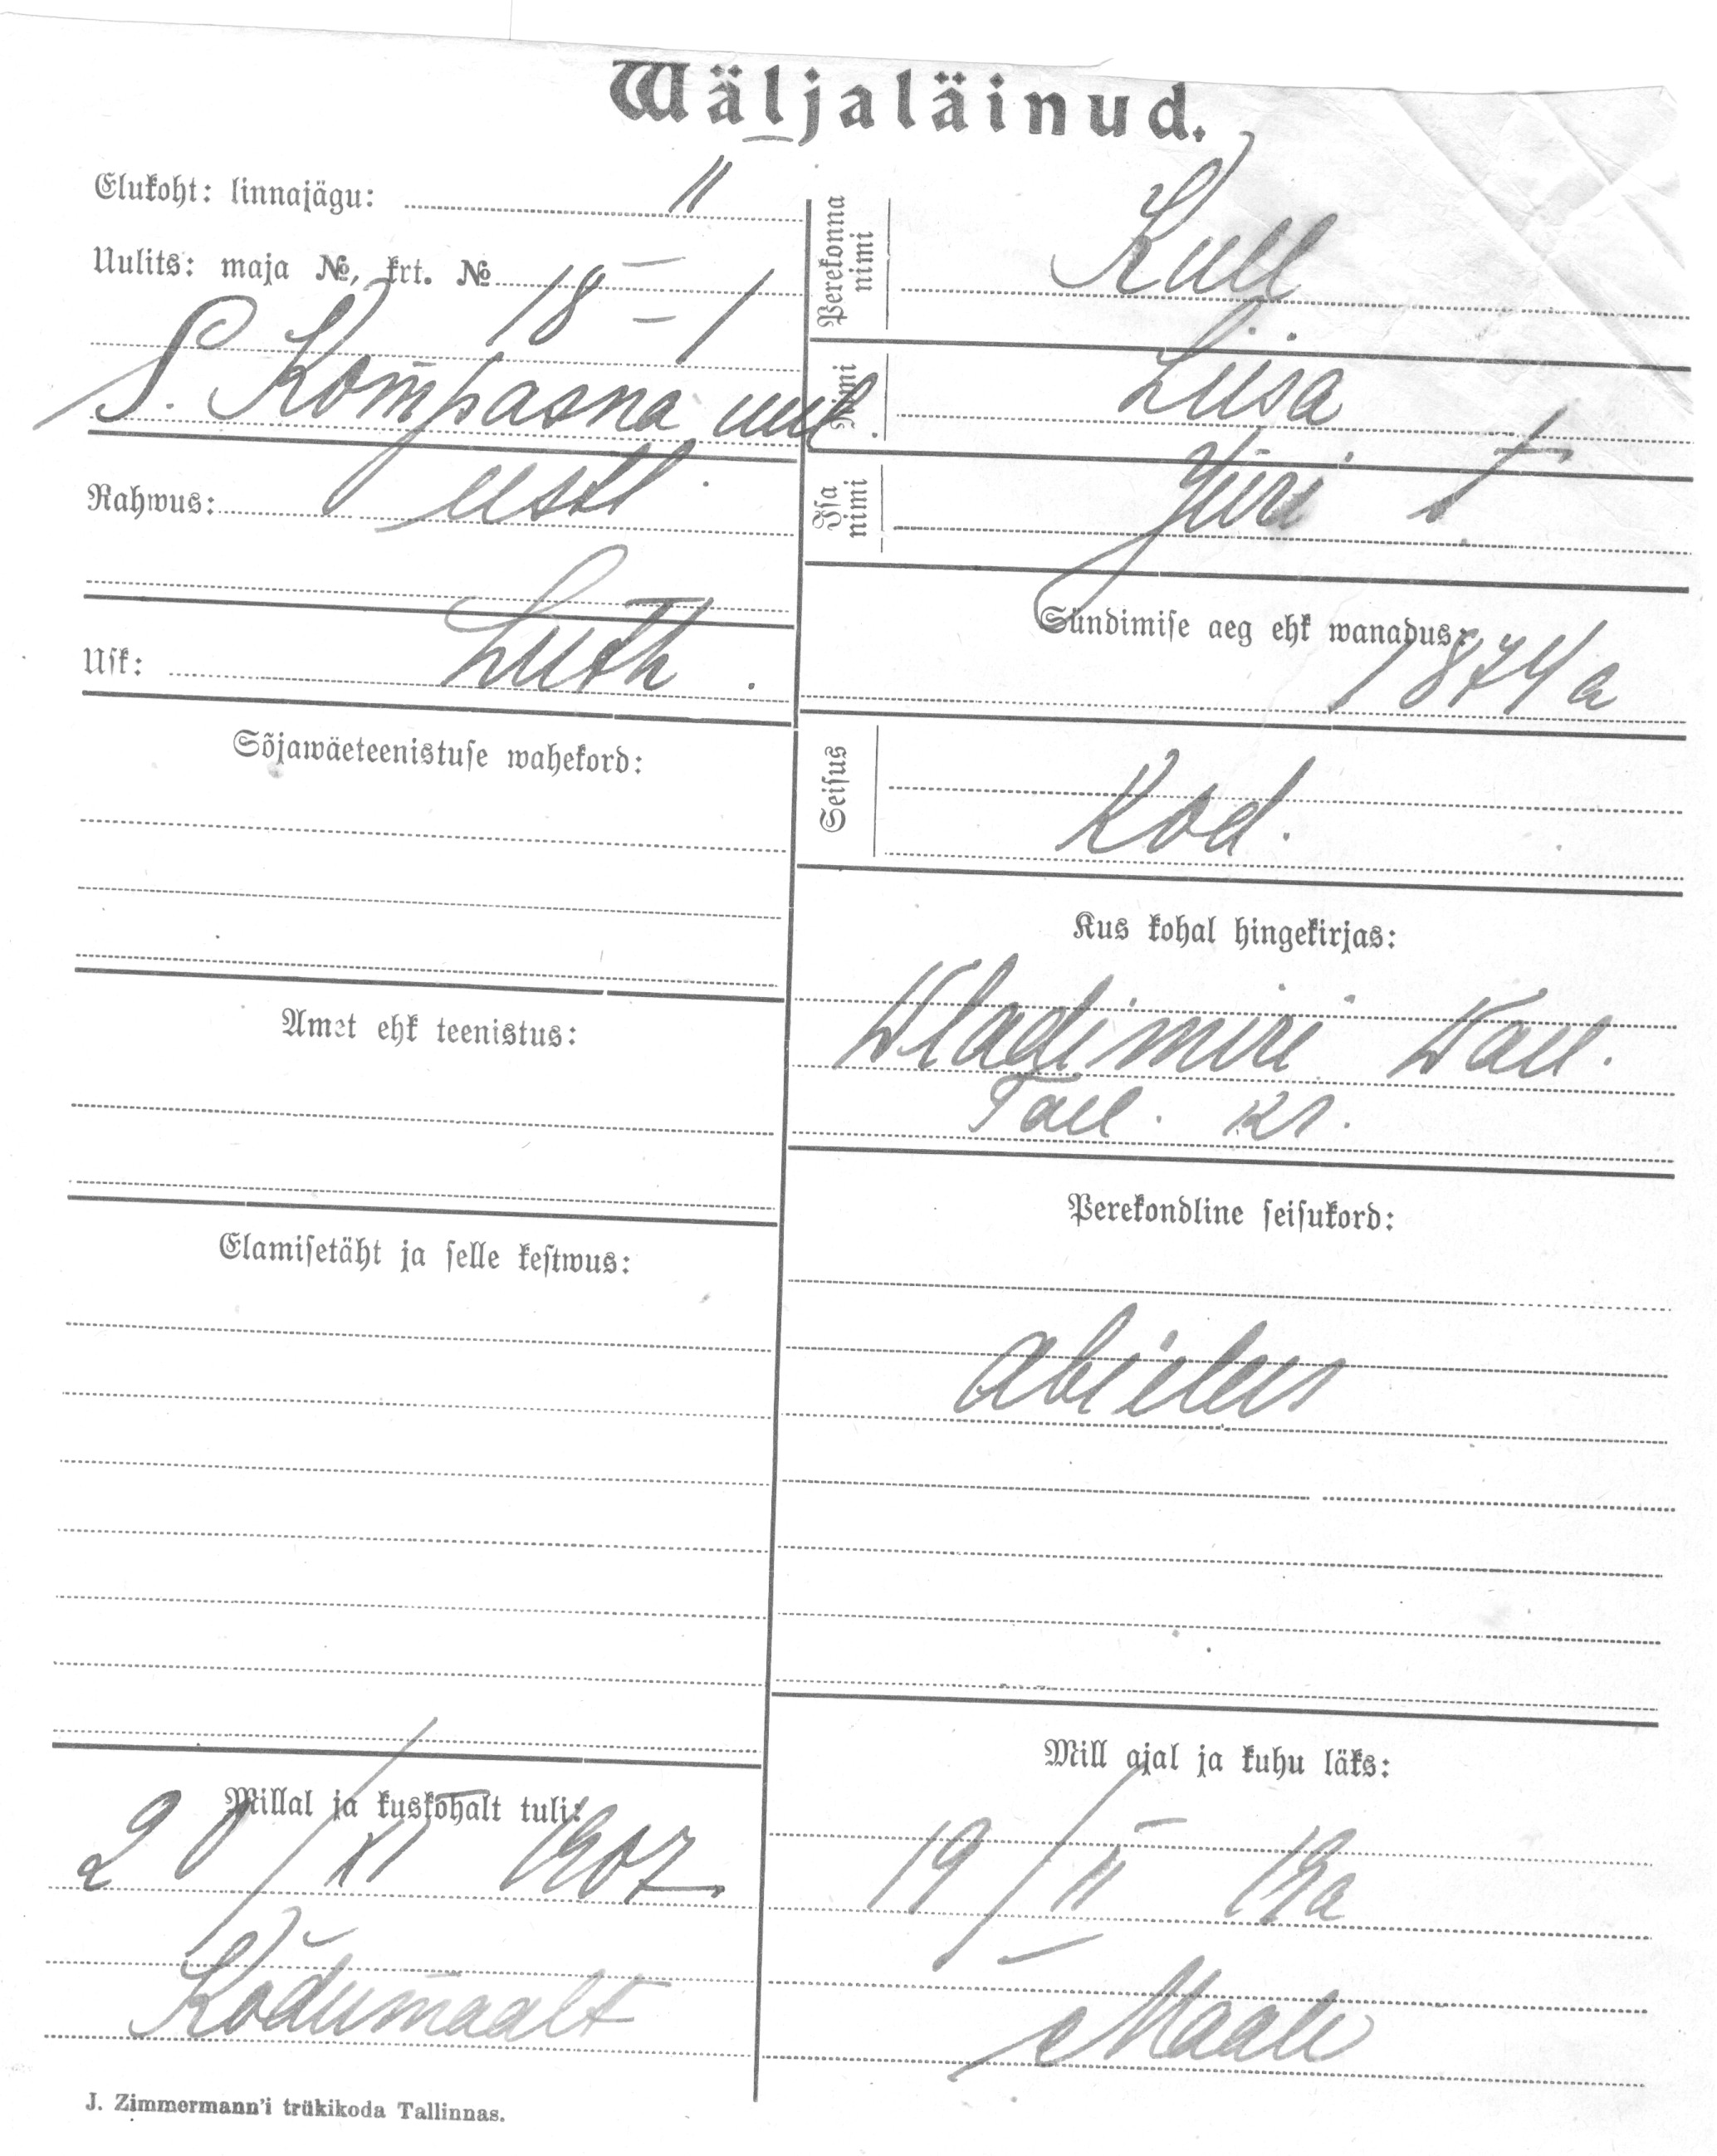 Wäljaläinud.
Elukoht: linnajägu: II
Uulits: maja №, krt. № 18 – 1
S. Kompasna uul.
Rahwus: eestl.
Usk: Luth.
Sõjawäeteenistuse wahekord:
Amet ehk teenistus:
Elamisetäht ja selle kestwus:
Millal ja kuskohalt tuli:
20/XI 1907
Kodumaalt
Perekonna nimi Kull
Nimi Liisa
Isa nimi Jüri t
Sündimise aeg ehk wanadus:
1874 a
Seisus Kod.
Kus kohal hingekirjas:
Wladimiri Wall.
Tall. kr.
Perekondline seisukord:
abielus
Mill ajal ja kuhu läks:
19/II 19 a
Maale
J. Zimmermann'i trükikoda Tallinnas.